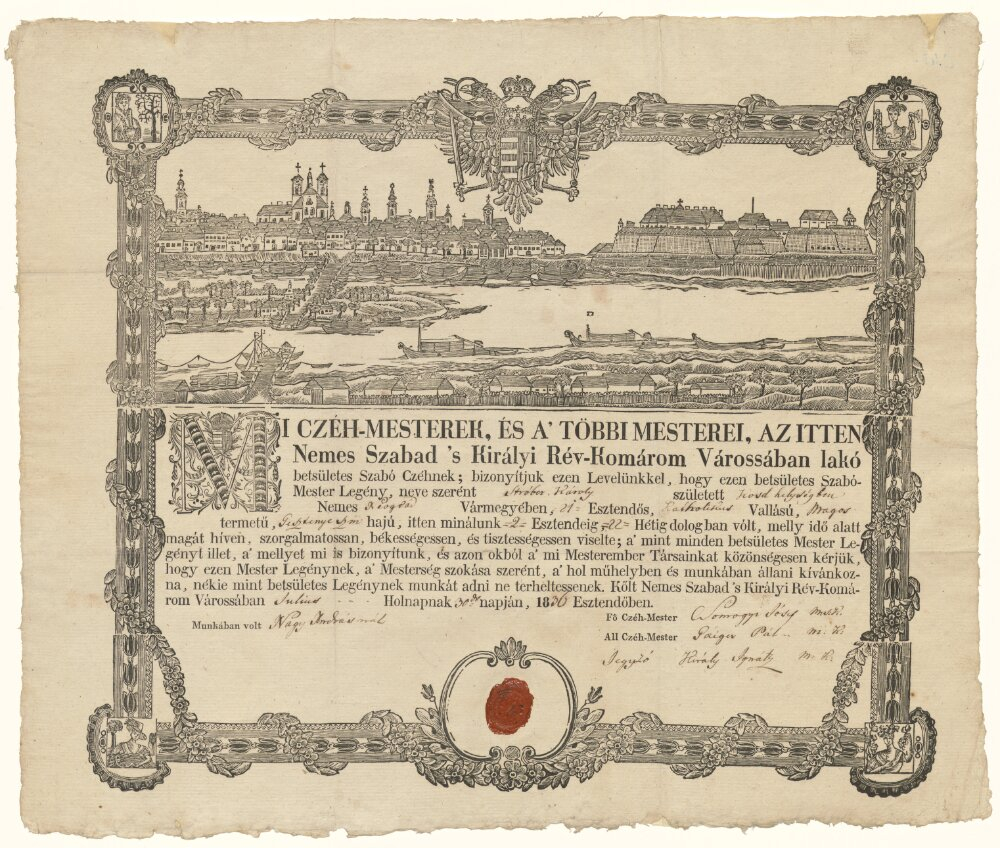 MI CZÉH-MESTEREK, ÉS A' TÖBBI MESTEREI, AZ ITTEN
Nemes Szabad 's Királyi Rév-Komárom Várossában lakó
betsületes Szabó Czéhnek; bizonyítjuk ezen Levelünkkel, hogy ezen betsületes Szabó-
Mester Legény, neve szerént Ströber Károly született helységben
Nemes Vármegyében, 21 Esztendős, Katholikus Vallású, Magos
termetű, Gesztenye szin hajú, itten minálunk =2= Esztendeig =22= Hétig dologban vólt, melly idő alatt
magát híven, szorgalmatossan, békességessen, és tisztességessen viselte; a' mint minden betsületes Mester Le-
gényt illet, a' mellyet mi is bizonyítunk, és azon okból a' mi Mesterember Társainkat közönségesen kérjük,
hogy ezen Mester Legénynek, a' Mesterség szokása szerént, a' hol műhelyben és munkában állani kívánkoz-
na, nékie mint betsületes Legénynek munkát adni ne terheltessenek. Költ Nemes Szabad 's Királyi Rév-Komá-
rom Várossában Julius Holnapnak 30dik napján, 1836 Esztendőben.
Munkában volt Nagy Andrásnál
Fő Czéh-Mester Somogyi Jósef m. k.
All Czéh-Mester Gaiger Pál m. k.
Jegyző Király Ignátz m. k.